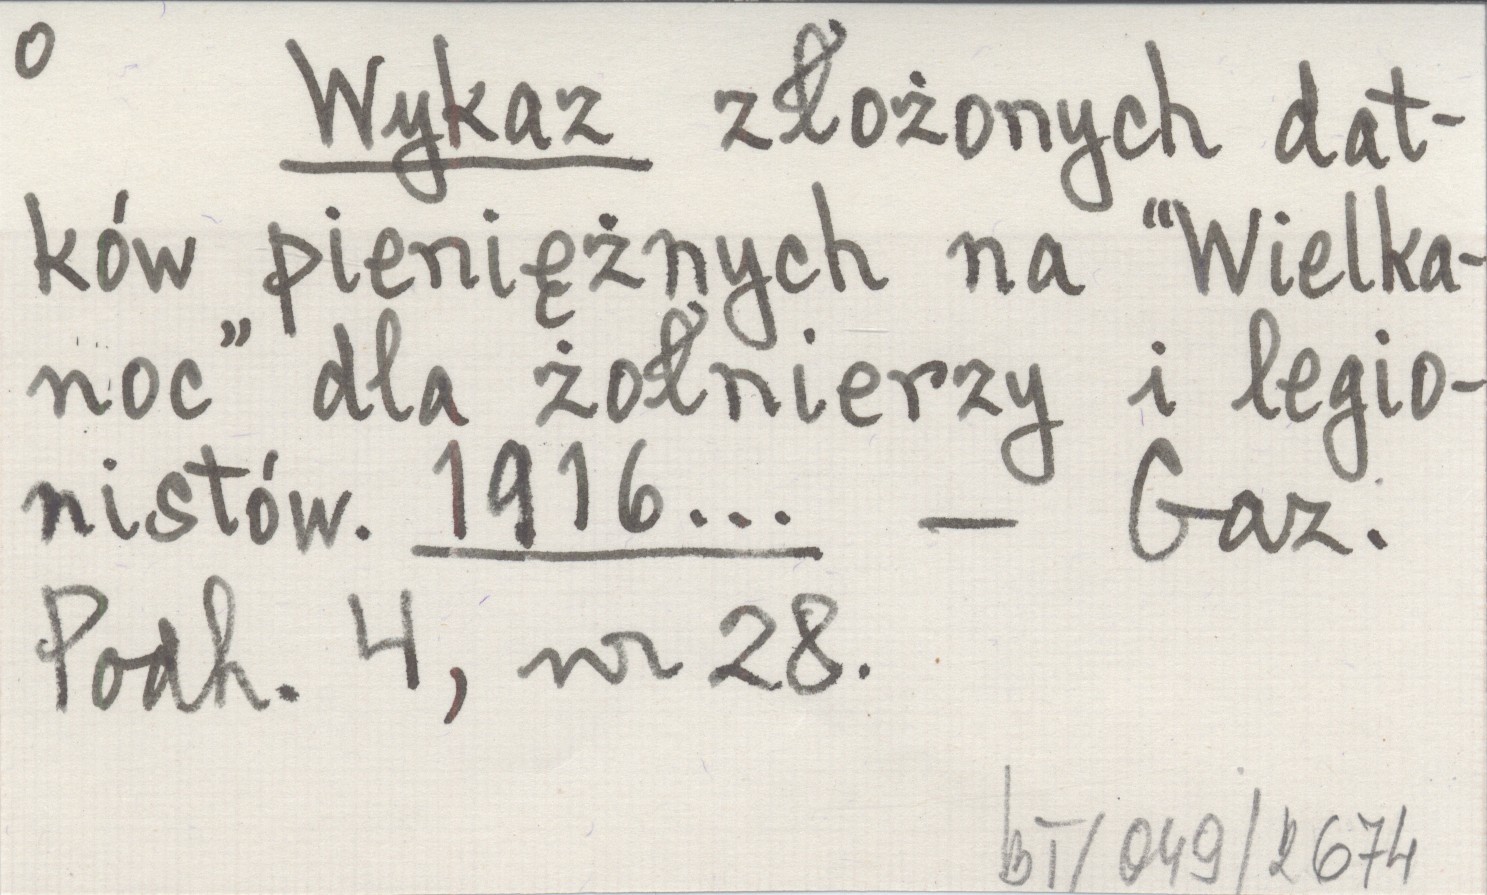 o
Wykaz złożonych dat-
ków pieniężnych na “Wielka-
noc” dla żołnierzy i legio-
nistów. 1916... — Gaz.
Podh. 4, nr 28.
bT/049/2674